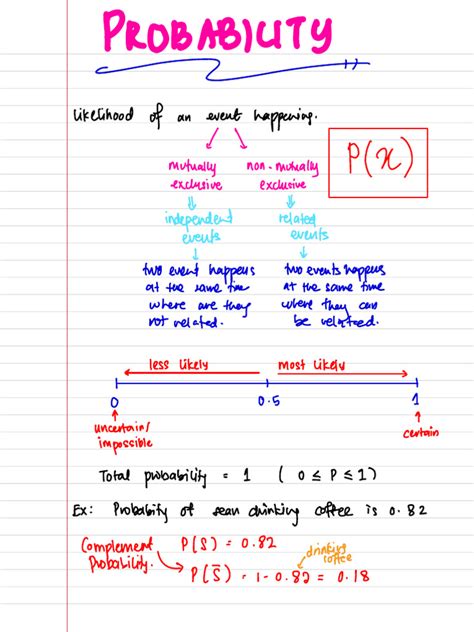 PROBABILITY
likelihood of an event happening.
P(x)
mutually exclusive
non-mutually exclusive
independent events
related events
two event happens
at the same time
where are they
not related.
two events happens
at the same time
where they can
be related.
less likely
most likely
0
0.5
1
uncertain/
impossible
certain
Total probability = 1 ( 0 ≤ P ≤ 1 )
Ex: Probability of sean drinking coffee is 0.82
Complement
Probability.
P(S) = 0.82
drinking
coffee
P(S̅) = 1 - 0.82 = 0.18